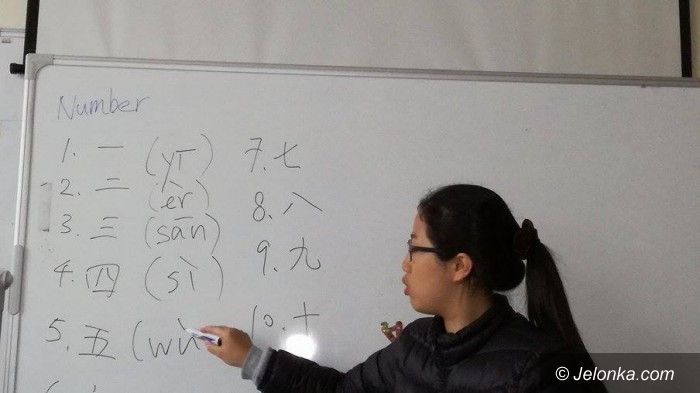 Number
1. 一 (yī)
2. 二 (èr)
3. 三 (sān)
4. 四 (sì)
5. 五 (wǔ
7. 七
8. 八
9. 九
10. 十
© Jelonka.com